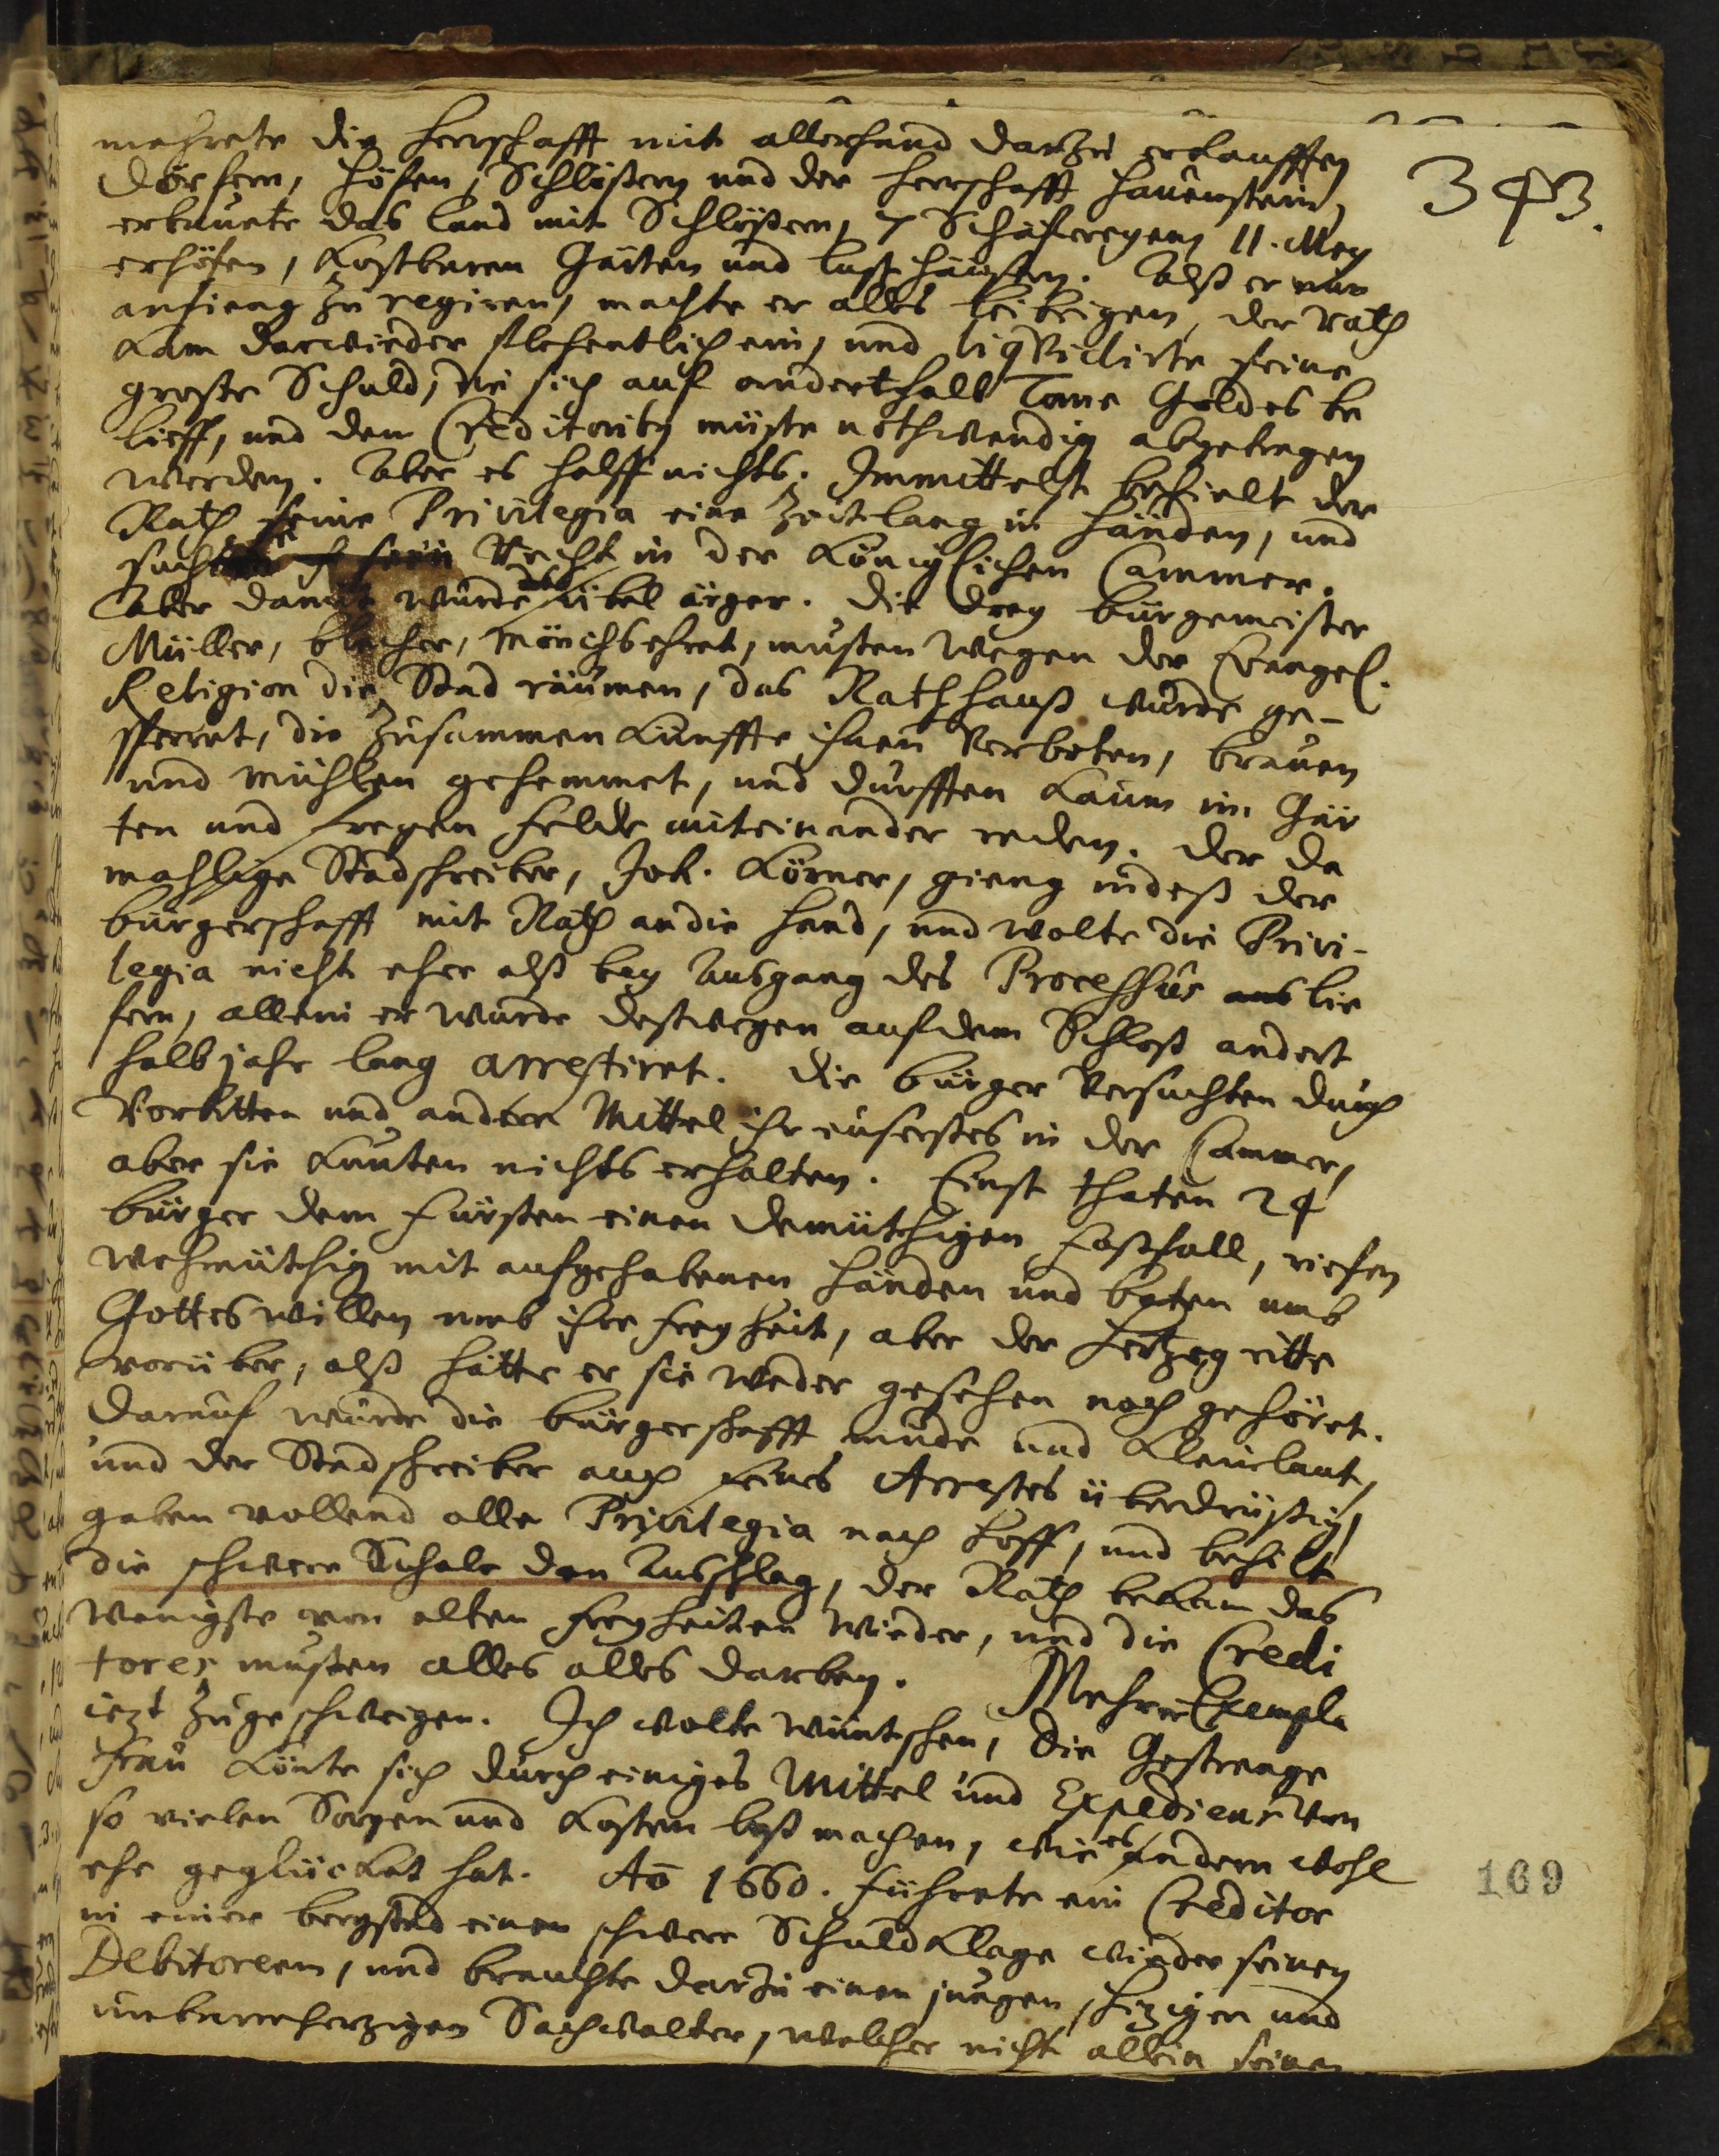 343.
mehrete die Herrschafft mit allerhand darzu erkaufften
Dörfern, Höfen, Schlößern und der Herrschafft Hauenstein,
erbauete das Land mit Schlößern, 7 Schäfereyen, 11. Mey
erhöfen, kostbaren Gärten und Lusthäusern. Alß er nun
anfieng zu regiren, machte er alles leibeigen, der Rath
kam darwieder flehentlich ein, und liqvidirte seine
große Schuld, die sich auf anderthalb Tone Goldes be
lieff, und den Creditoribus müste nothwendig abgetragen
werden. Aber es halff nichts. Immittelst behielt der
Rath seine Privilegia eine Zeitlang in Händen, und
suchte sein Recht in der Königlichen Cammer.
Aber damit wurde das übel ärger. Die drey Bürgemeister
Müller, Blecher, Mönchsehret, musten wegen der Evangel.
Religion die Stad räumen, das Rathhauß wurde ge-
sperret, die Zusammenkünffte ihnen verboten, Brauen
und Mühlen gehemmet, und durfften kaum im Gär
ten und freyen Felde miteinander reden. Der da
mahlige Stadschreiber, Joh. Körner, gieng indeß der
Bürgerschafft mit Rath an die Hand, und wolte die Privi-
legia nicht eher alß bey Ausgang des Processus auslie
fern, allein er wurde deswegen auf dem Schloß andert
halb jahr lang arrestiret. Die Bürger versuchten durch
Vorbitten und andere Mittel ihr euserstes in der Cammer,
aber sie kunten nichts erhalten. Einst thaten 24
Bürger dem Fürsten einen demüthigen Fußfall, riefen
wehmüthig mit aufgehabenen Händen und baten umb
Gottes willen umb ihre Freyheit, aber der Hertzog ritte
vorüber, alß hätte er sie weder gesehen noch gehöret.
Darauf wurde die Bürgerschafft müde und kleinlaut,
und der Stadschreiber auch seines Arrestes überdrüßig,
gaben vollend alle Privilegia nach Hoff, und behilt
die schwere Schale den Ausschlag, der Rath bekam das
wenigste von alten Freyheiten wieder, und die Credi
tores musten alles alles darben. Mehrer Exempla
iezt zugeschweigen. Ich wolte wüntschen, die Gestrenge
Frau könte sich durch einiges Mittel und Expediens von
so vielen Sorgen und Kosten loß machen, wie es andern wohl
ehe geglücket hat. Ao 1660. führete ein Creditor
in einer Bergstad einen schwere Schuldklage wieder seinen
Debitorem, und brauchte darzu einen jungen, hizigen und
unbarmherzigen Sachwalter, welcher nicht allein seinen
169